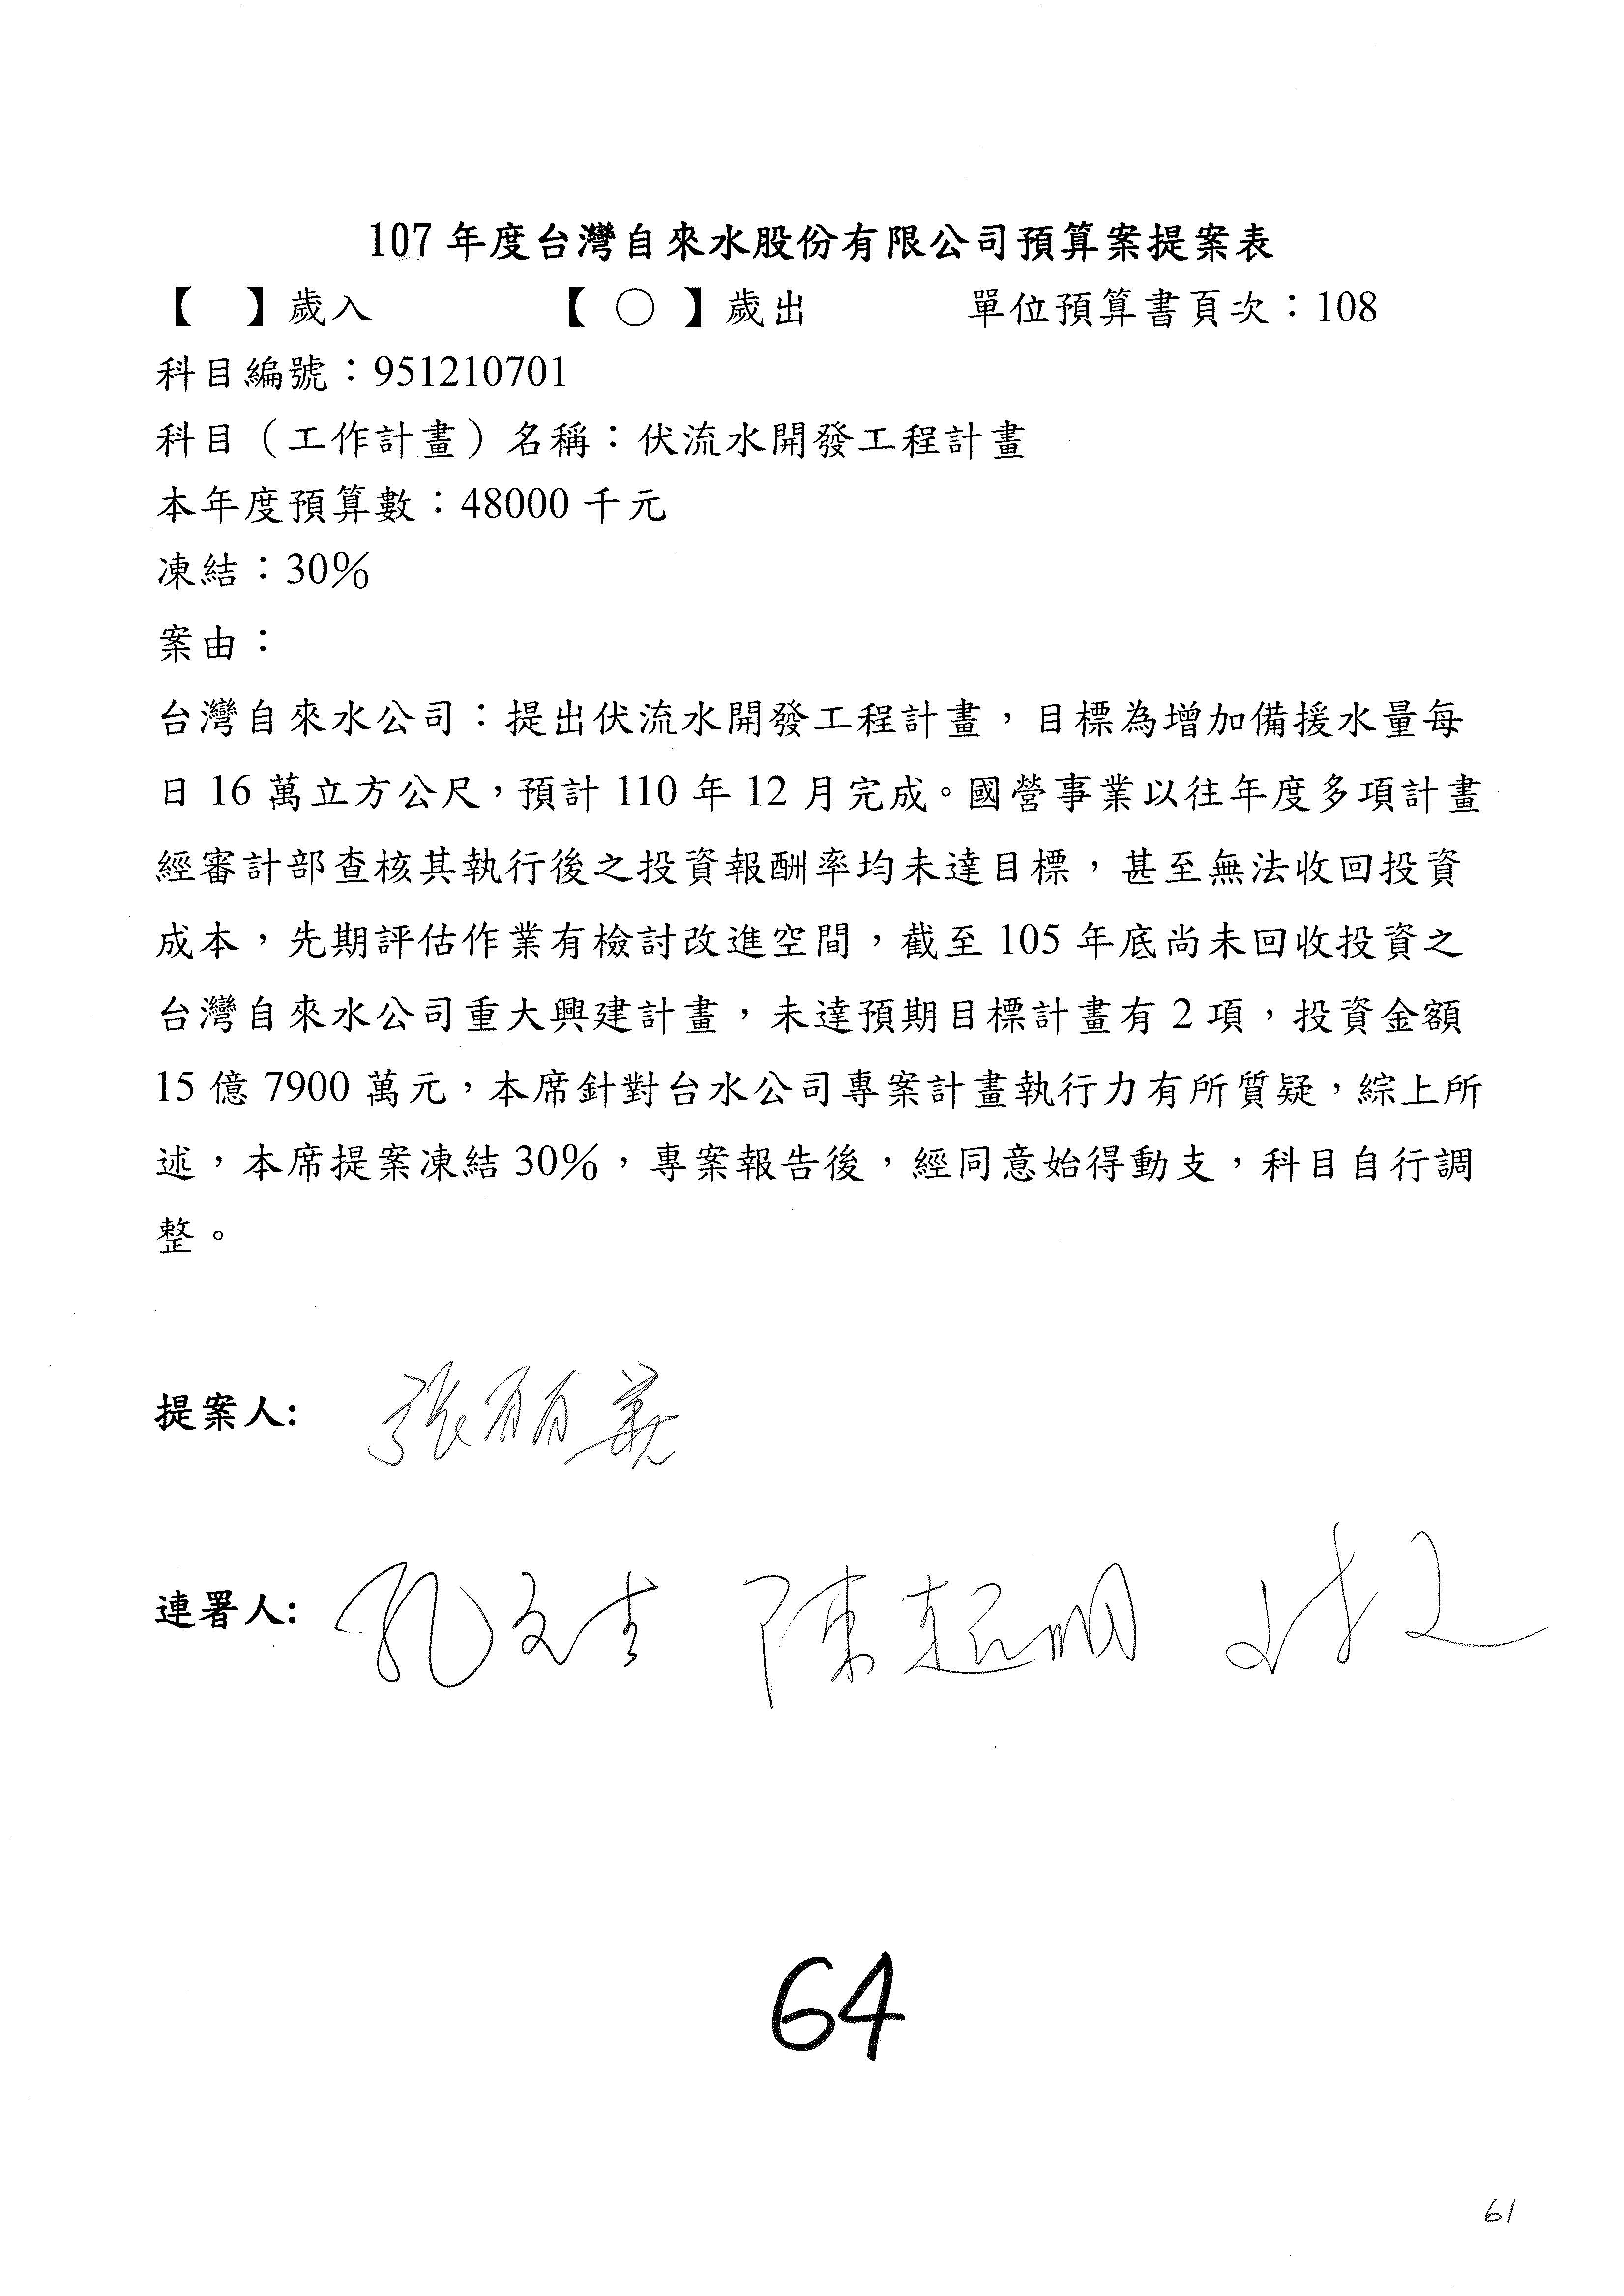 107 年度台灣自來水股份有限公司預算案提案表
【　】歲入　【 ○ 】歲出　單位預算書頁次：108
科目編號：951210701
科目（工作計畫）名稱：伏流水開發工程計畫
本年度預算數：48000 千元
凍結：30%
案由：
台灣自來水公司：提出伏流水開發工程計畫，目標為增加備援水量每
日 16 萬立方公尺，預計 110 年 12 月完成。國營事業以往年度多項計畫
經審計部查核其執行後之投資報酬率均未達目標，甚至無法收回投資
成本，先期評估作業有檢討改進空間，截至 105 年底尚未回收投資之
台灣自來水公司重大興建計畫，未達預期目標計畫有 2 項，投資金額
15 億 7900 萬元，本席針對台水公司專案計畫執行力有所質疑，綜上所
述，本席提案凍結 30%，專案報告後，經同意始得動支，科目自行調
整。
提案人: 張麗善
連署人: 孔文吉 陳超明
64
61